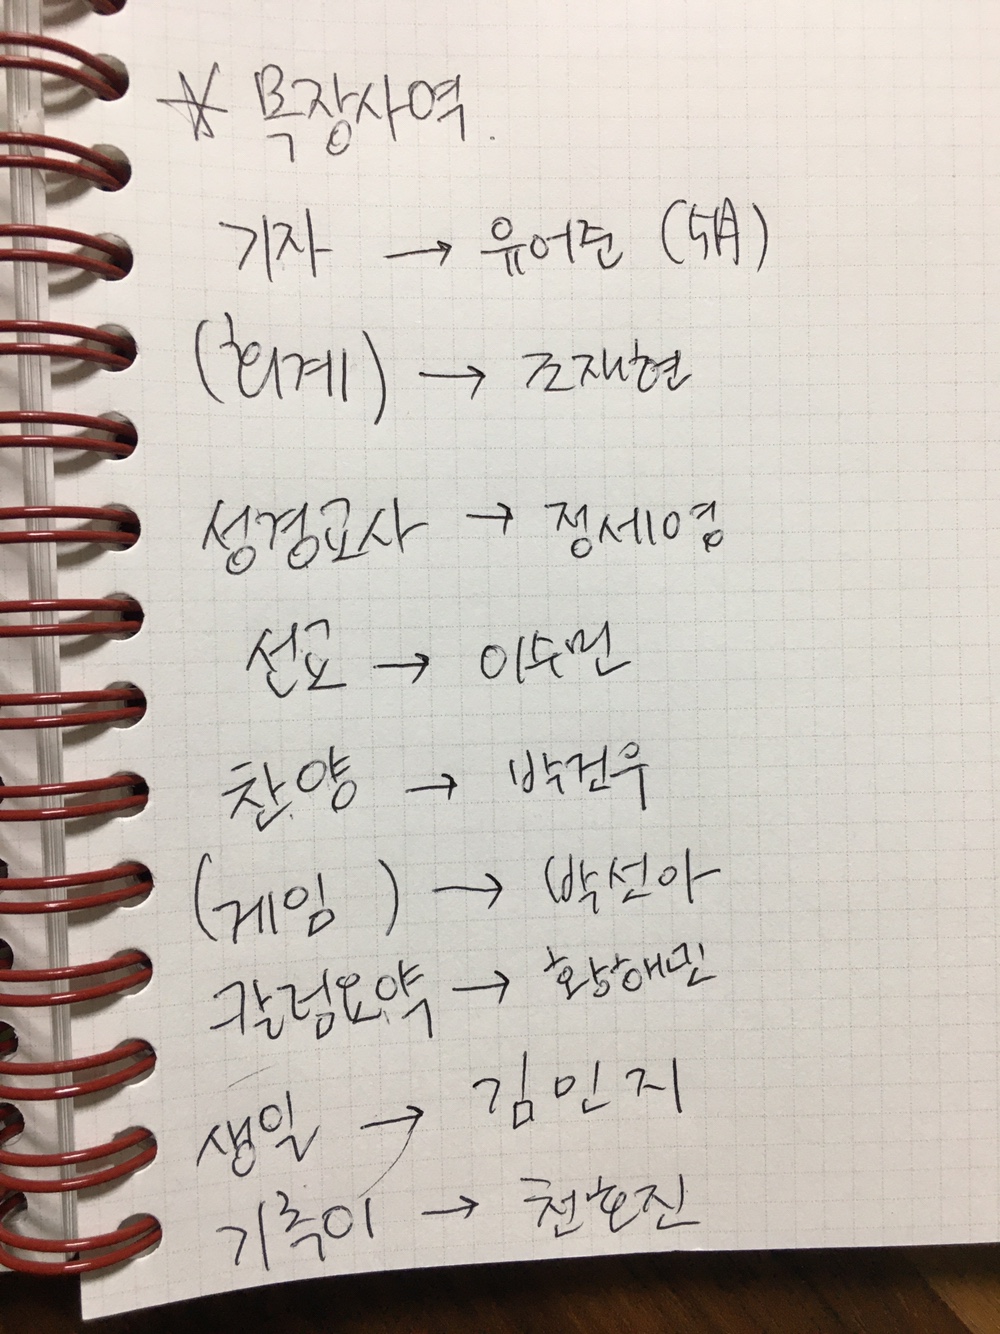 ☆ 목장사역.
기자 → 유어준 (5月)
(회계) → 조재현
성경교사 → 정세영
선교 → 이수민
찬양 → 박건우
(게임) → 박선아
칼럼요약 → 황해민
생일 → 김민지
기록이 → 천호진